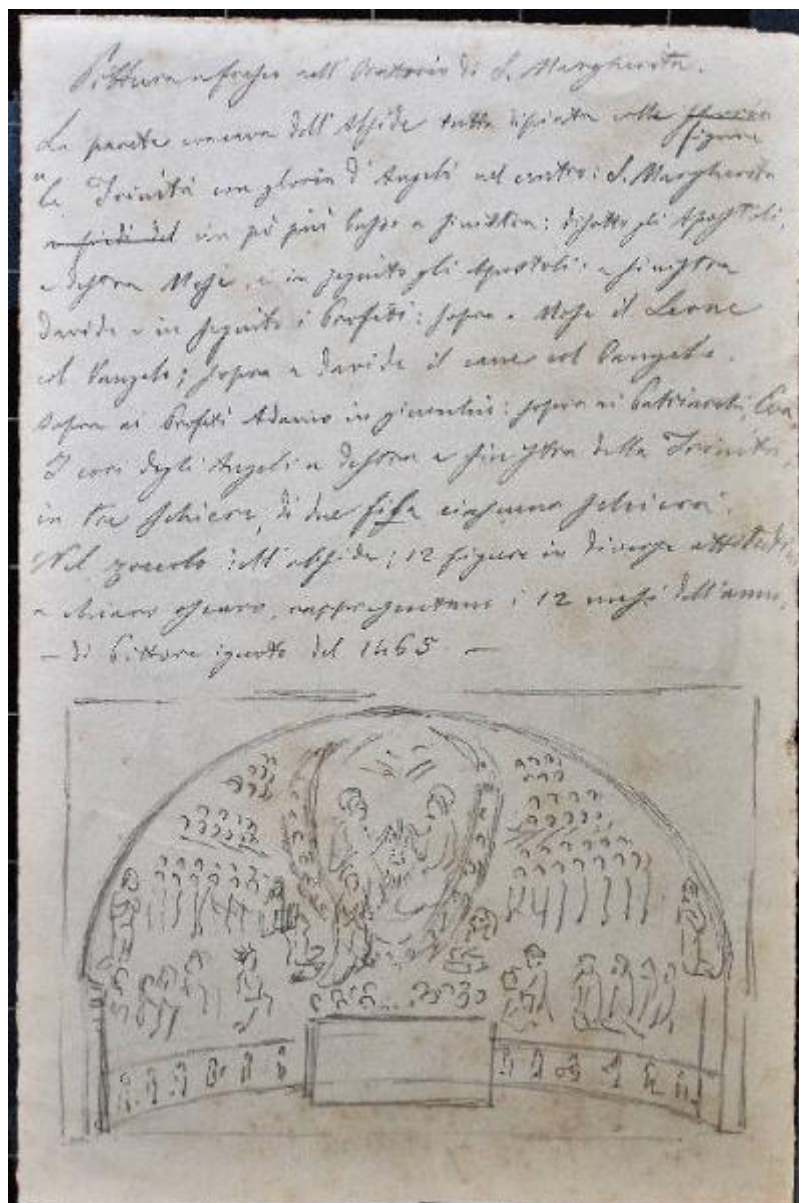 Pittura a fresco nell'Oratorio di S. Margherita.
La parete concava dell'Abside tutta dipinta colla figura
la Trinità con gloria d'Angeli nel centro: S. Margherita
un pò più basso a sinistra: disotto gli Apostoli,
a destra Mosè, e in seguito gli Apostoli: a sinistra
Davide e in seguito i Profeti: sopra a Mosè il Leone
col Vangelo; sopra a Davide il col Vangelo.
Sopra ai Profeti Adamo in : sopra ai Patriarchi, Eva,
I cori degli Angeli a destra e sinistra della Trinità,
in tre schiere, di due file ciascuna schiera.
Nel zoccolo dell'abside; 12 figure in diverse attitudini
a chiaro oscuro, rappresentano i 12 mesi dell'anno,
— di Pittore ignoto del 1465 —